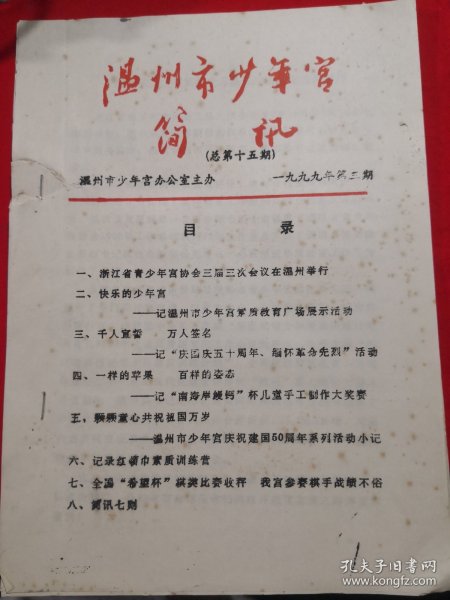 温州市少年宫
简讯
(总第十五期)
温州市少年宫办公室主办 一九九九年第三期
目 录
一、浙江省青少年宫协会三届三次会议在温州举行
二、快乐的少年宫
——记温州市少年宫素质教育广场展示活动
三、千人宣誓 万人签名
——记“庆国庆五十周年、缅怀革命先烈”活动
四、一样的苹果 百样的姿态
——记“南海岸鳗钙”杯儿童手工制作大奖赛
五、颗颗童心共祝祖国万岁
——温州市少年宫庆祝建国50周年系列活动小记
六、记录红领巾素质训练营
七、全国“希望杯”棋类比赛收秤 我宫参赛棋手战绩不俗
八、简讯七则
孔夫子旧书网
www.kongfz.com